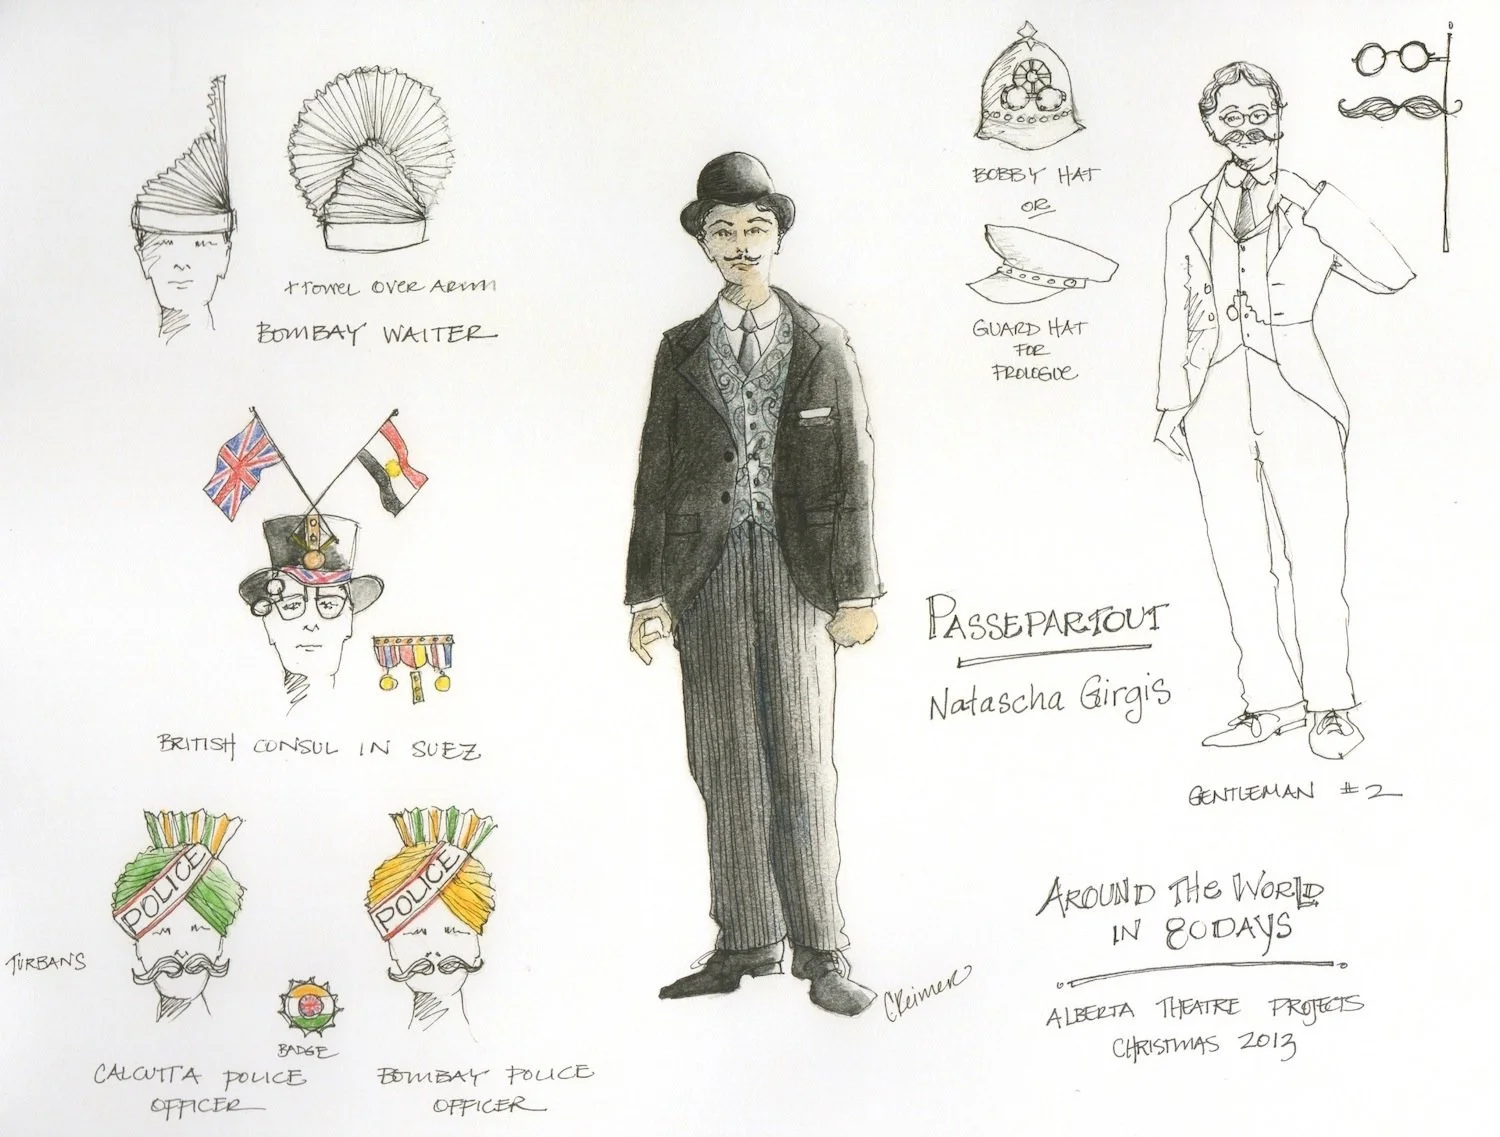 + TOWEL OVER ARM
BOMBAY WAITER
BRITISH CONSUL IN SUEZ
POLICE
POLICE
TURBANS
BADGE
CALCUTTA POLICE
OFFICER
BOMBAY POLICE
OFFICER
BOBBY HAT
OR
GUARD HAT
FOR
PROLOGUE
PASSEPARTOUT
Natascha Girgis
GENTLEMAN #2
AROUND THE WORLD
IN 80 DAYS
ALBERTA THEATRE PROJECTS
CHRISTMAS 2013
CReimer